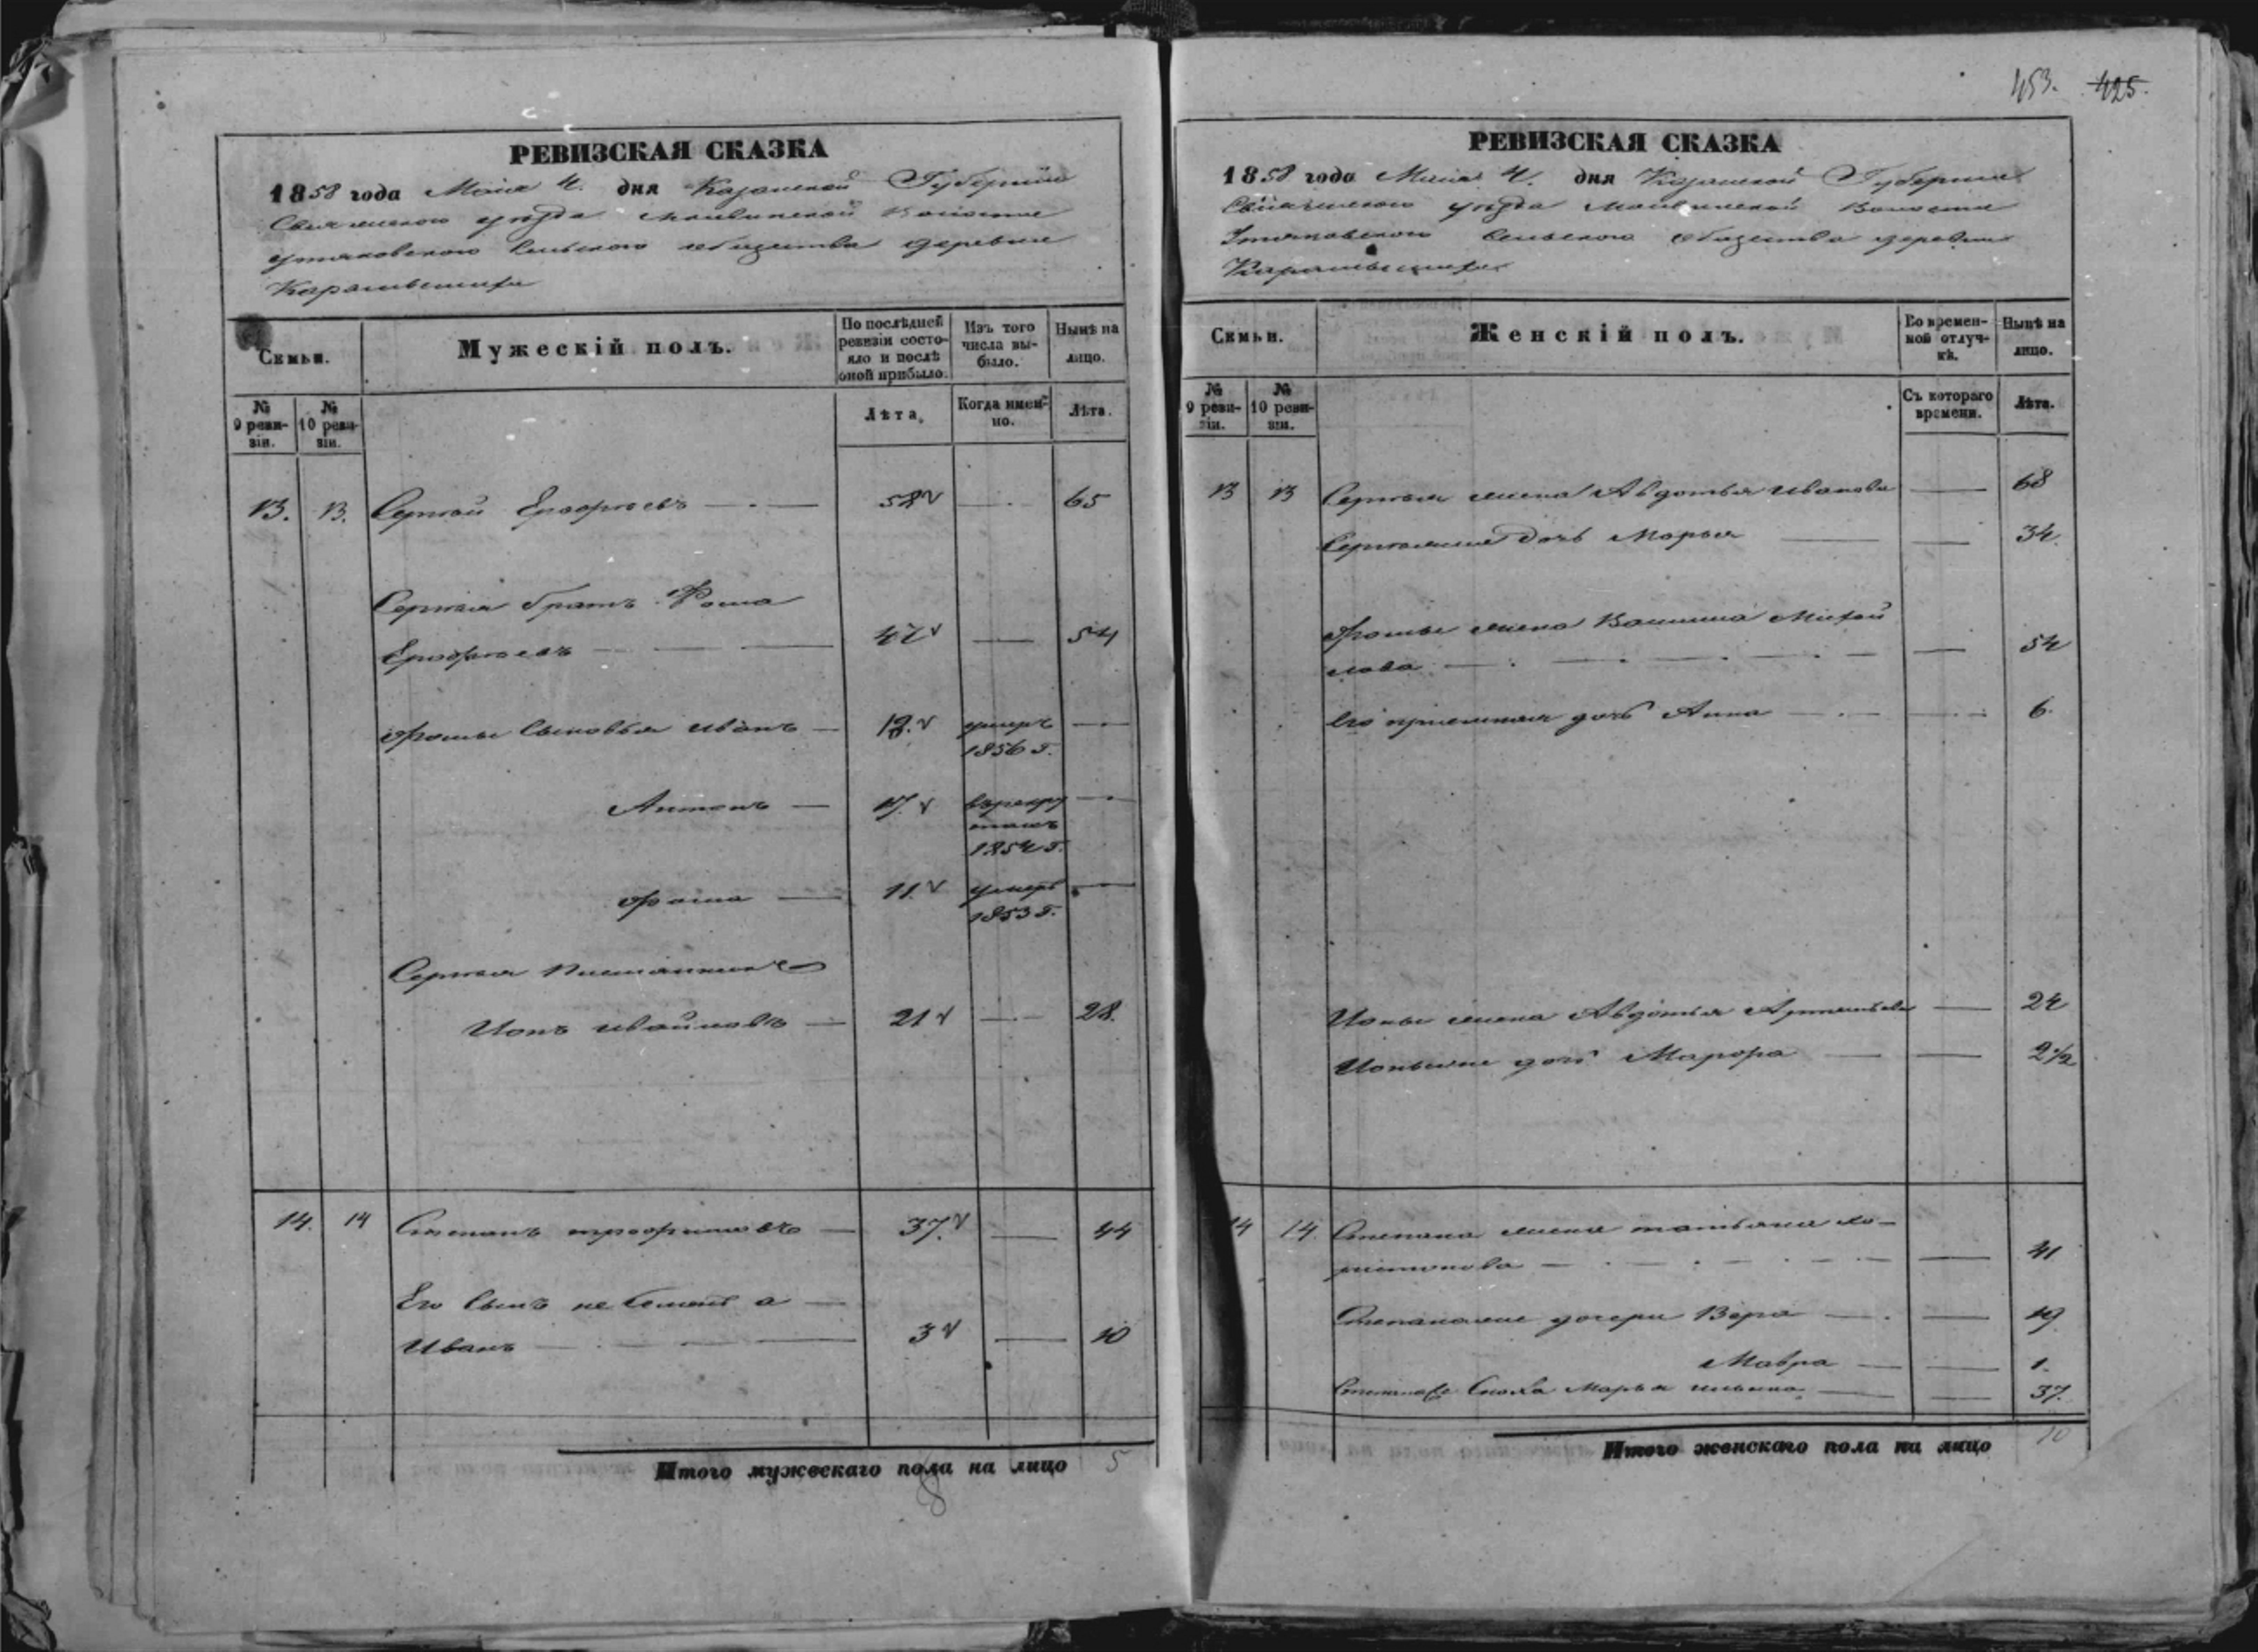 453. 425.
РЕВИЗСКАЯ СКАЗКА
1858 года Маія 4. дня Казанской Губерніи
Свіяжскаго уѣзда Волости
Сельскаго общества деревни
Семьи.
Мужескій полъ.
По послѣдней ревизіи состояло и послѣ оной прибыло.
Изъ того числа выбыло.
Нынѣ на лицо.
№ 9 ревизіи.
№ 10 ревизіи.
Лѣта.
Когда именно.
Лѣта.
13. 13. Сергѣй Ерофѣевъ 58 65
Сергѣя братъ Фома
Ерофѣевъ 47 54
Фомы Сыновья Иванъ 18. умеръ
1856 г.
Антонъ 17. въ рекру
тахъ
1854 г.
Фома 11 умеръ
1853 г.
Сергѣя племянникъ
Ионъ 21 28.
14. 14 Степанъ Трофимовъ 37. 44
Его Сынъ не а
Иванъ 3 10
Итого мужескаго пола на лицо 5
8
РЕВИЗСКАЯ СКАЗКА
1858 года Маія 4. дня Казанской Губерніи
Свіяжскаго уѣзда Волости
Сельскаго общества деревни
Семьи.
Женскій полъ.
Во временной отлучкѣ.
Нынѣ на лицо.
№ 9 ревизіи.
№ 10 ревизіи.
Съ котораго времени.
Лѣта.
13 13 Сергѣя жена Авдотья Иванова 68
дочь Марья 34.
Фомы жена Михай
лова 54
Его приемная дочь Анна 6.
Ионы жена Авдотья 24
дочь 2 1/2
14 14. Степана жена Татьяна
41
дочери Вера 19
Мавра 1.
Сноха Марья 37.
Итого женскаго пола на лицо 10